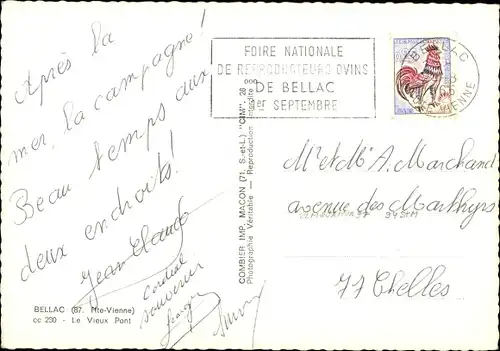 Après la
mer, la campagne!
Beau temps aux
deux endroits!
Jean Claude
Cordial
souvenir
BELLAC (87. Hte-Vienne)
cc 230 - Le Vieux Pont
COMBIER IMP. MACON (71. S.-et-L.) "CIM"
Photographie Véritable - Reproduction Interdite
FOIRE NATIONALE
DE REPRODUCTEURS OVINS
DE BELLAC
1er SEPTEMBRE
BELLAC
VIENNE
Mr et Me A. Marchand
avenue des Marthyrs
77 Chelles